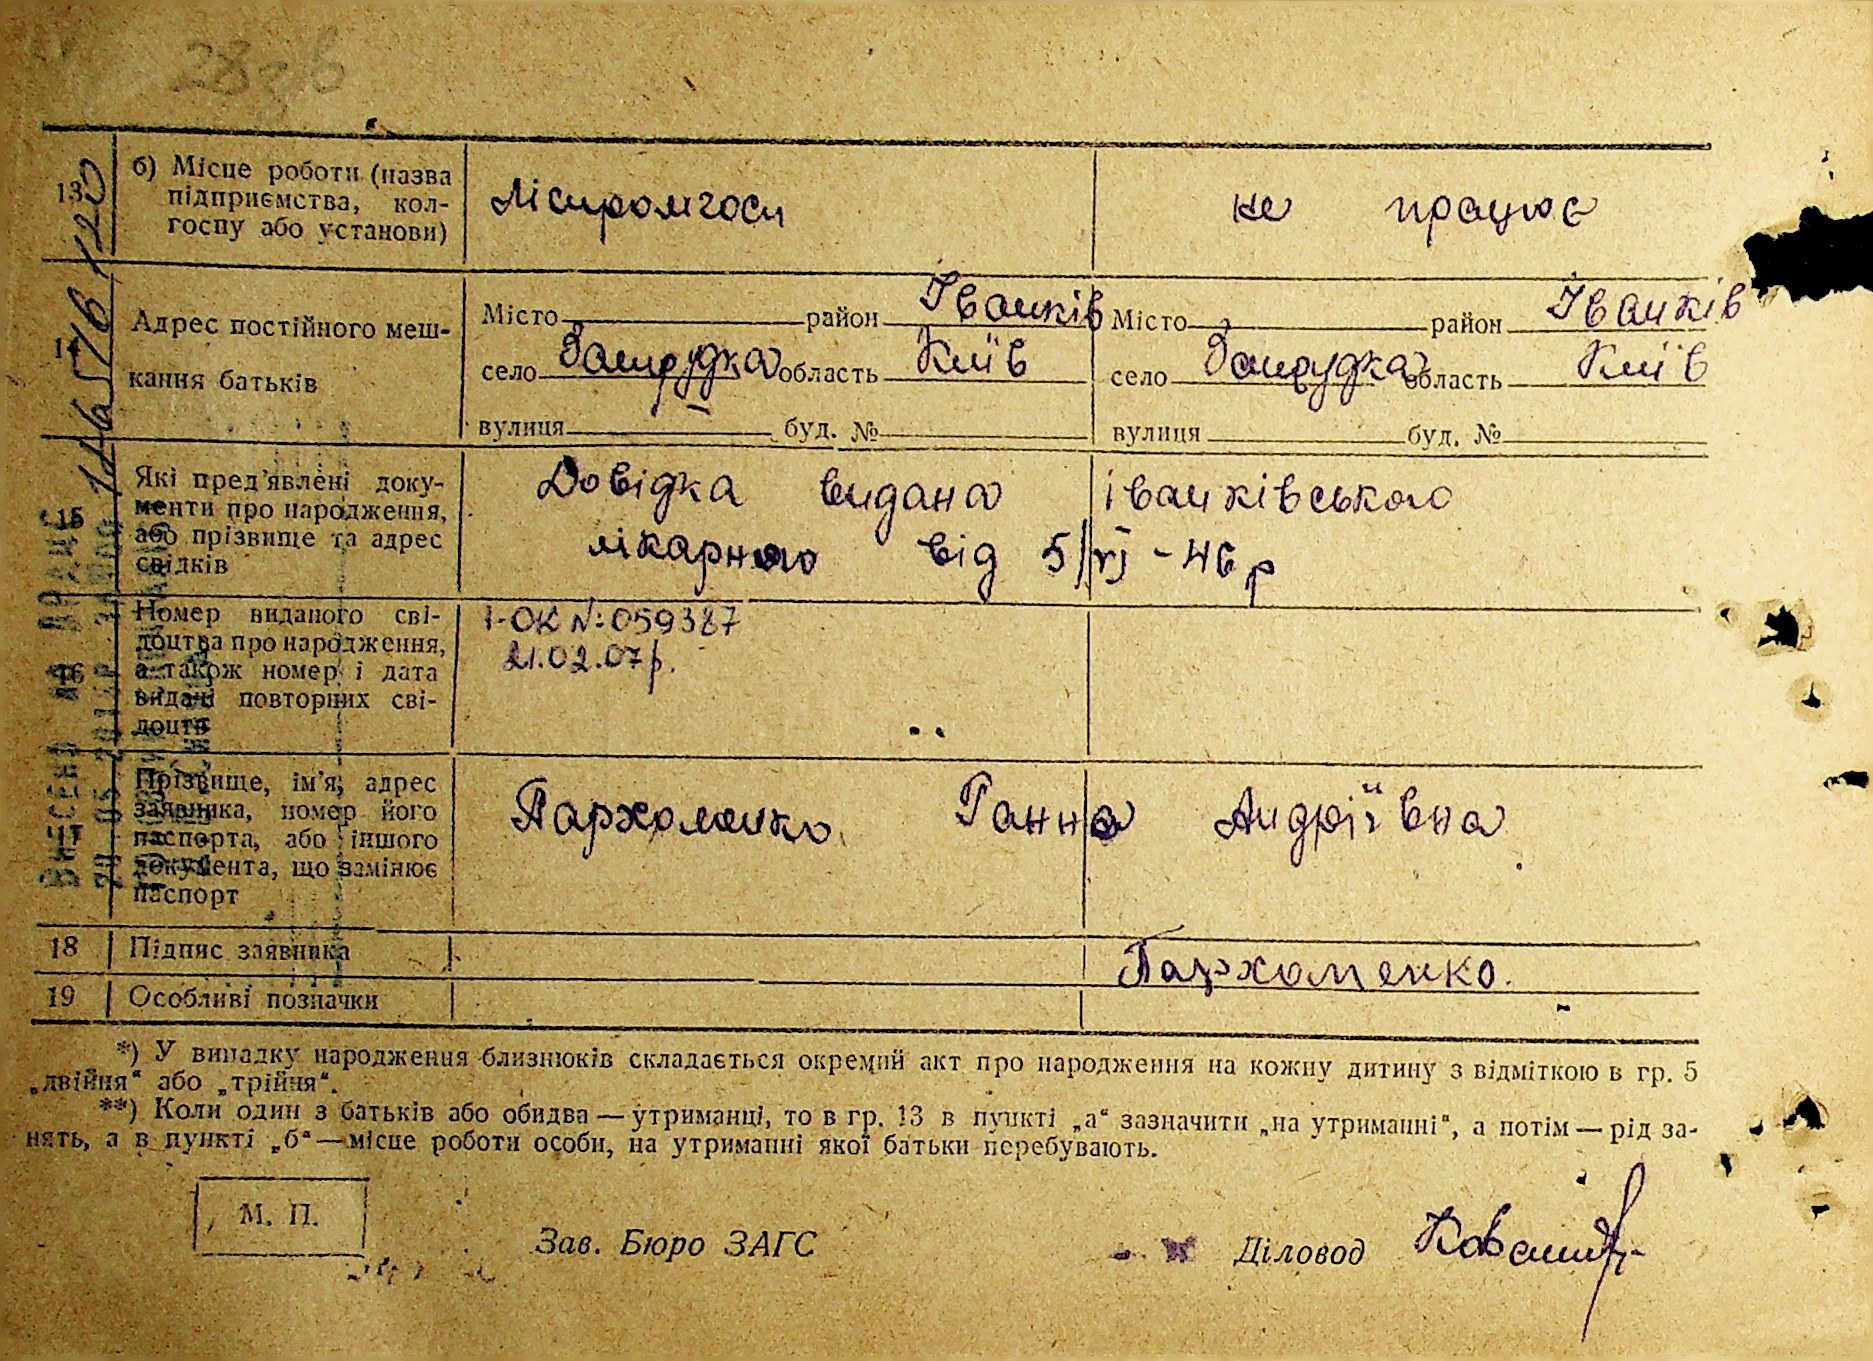 28
13 б) Місце роботи (назва
підприємства, кол-
госпу або установи)
Ліспромгосп не працює
14 Адрес постійного меш-
кання батьків
Місто район Іванків Місто район Іванків
село Замрудка область Київ село область Київ
вулиця — буд. № вулиця буд. №
15 Які пред'явлені доку-
менти про народження,
або прізвище та адрес
свідків
Довідка видана іванківського
лікарнею від 5/VI - 46 р
16 Номер виданого сві-
доцтва про народження,
а також номер і дата
видачі повторних сві-
доцтв
І-ОК №: 059387
21.02.07р.
17 Прізвище, ім'я, адрес
заявника, номер його
паспорта, або іншого
документа, що замінює
паспорт
Пархоменко Ганна Андріївна
18 Підпис заявника Пархоменко.
19 Особливі позначки
*) У випадку народження близнюків складається окремий акт про народження на кожну дитину з відміткою в гр. 5
„двійня“ або „трійня“.
**) Коли один з батьків або обидва — утриманці, то в гр. 13 в пункті „а“ зазначити „на утриманні“, а потім — рід за-
нять, а в пункті „б“ — місце роботи особи, на утриманні якої батьки перебувають.
М. П.
Зав. Бюро ЗАГС Діловод